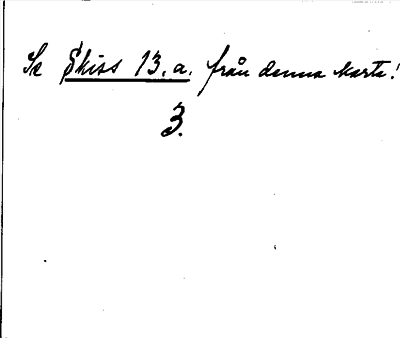 Se Skiss 13.a. från denna karta!
3.